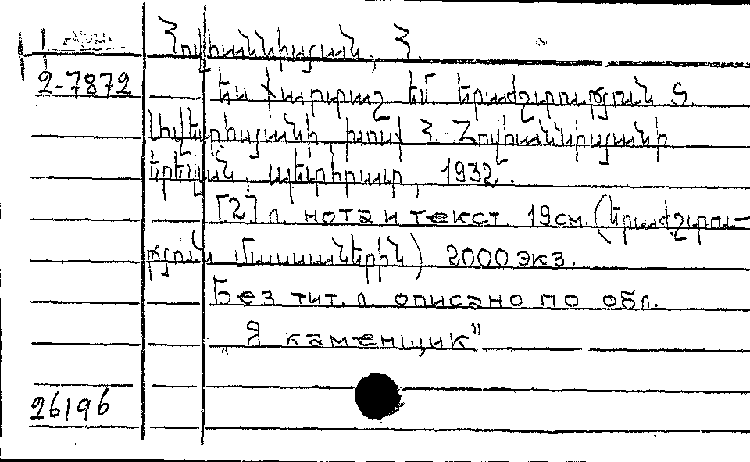 Հովհաննիսյան, Հ.
2-7872
Ես քարտաշ եմ երաժշտության Տ.
խոսք Հ. Հովհաննիսյանի
Երևան, պետհրատ, 1932.
[2] л. нота и текст 19 см. (Երաժշտու-
թյուն մասսաներին) 2000 экз.
Без тит. л. описано по обл.
"Я каменщик"
26196